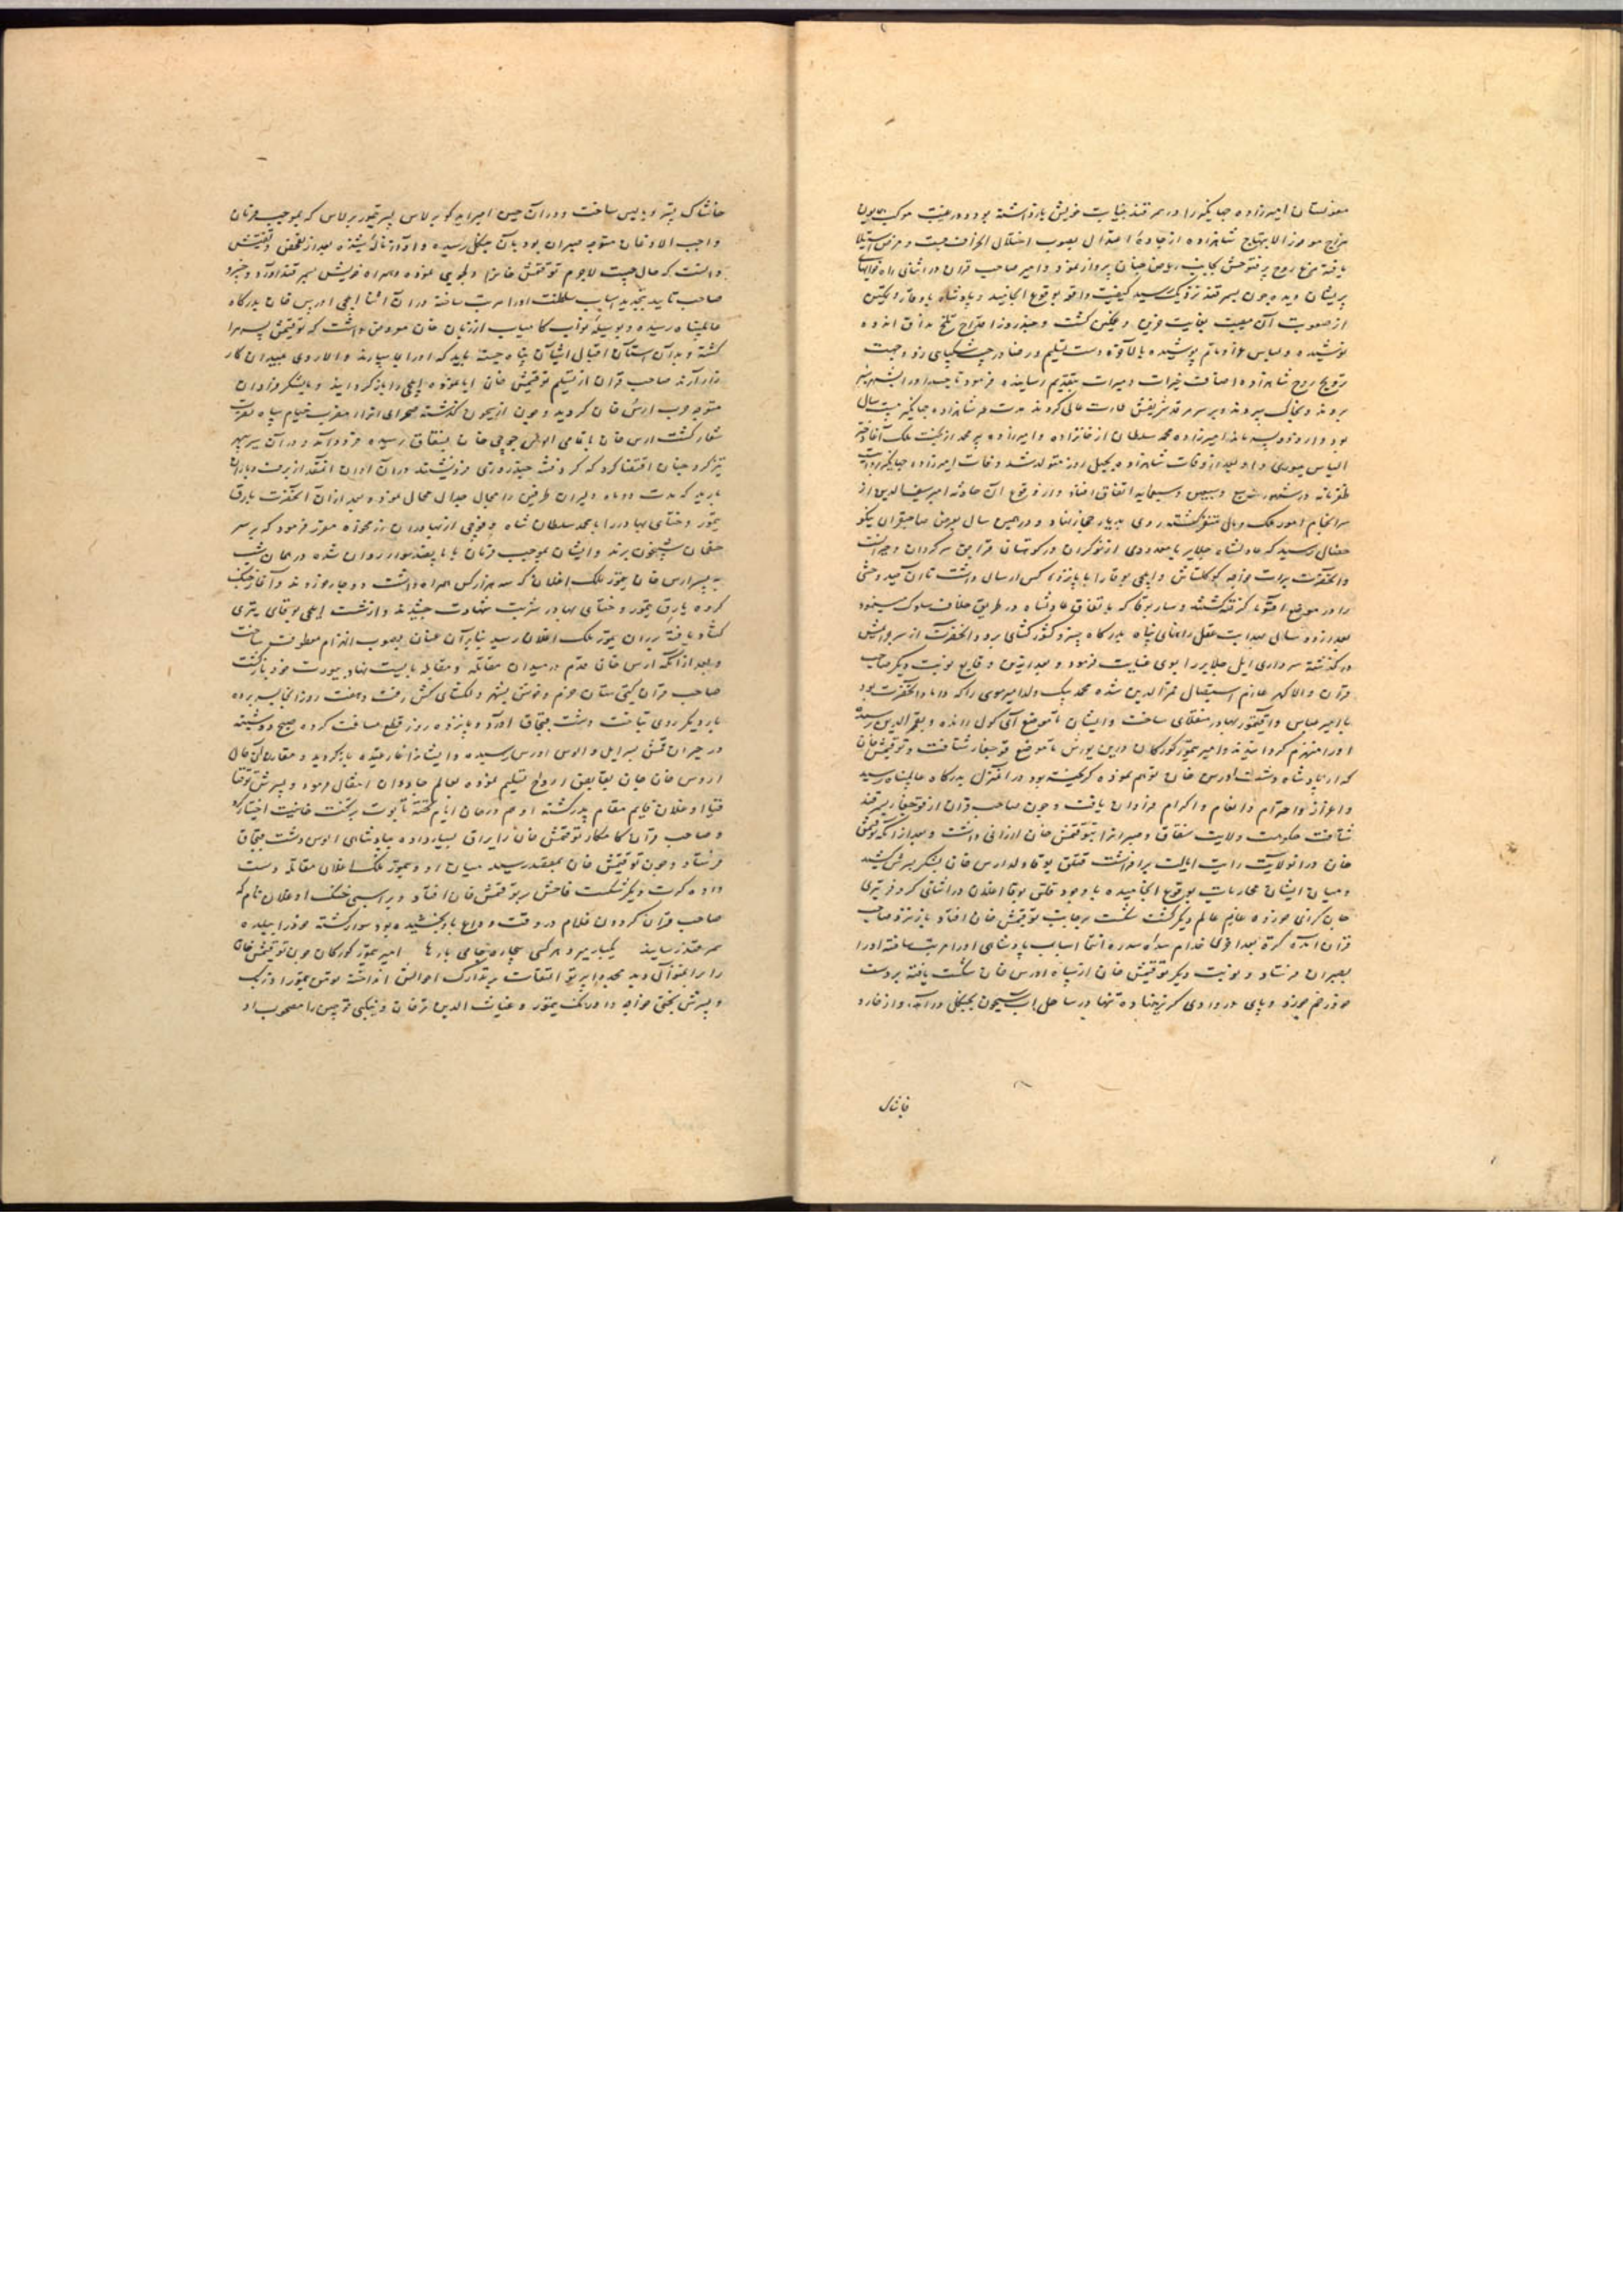 مغولستان امیرزاده جهانگیر را در سمرقند بنیابت خویش بازداشته بود و در غیبت موکب همایون
مزاج موفور الابتهاج شاهزاده از جادهٔ اعتدال بصوب اختلال انحراف جست و مرض استیلا
یافته مرغ روح پرفتوحش بجانب ریاض جنان پرواز نمود و امیر صاحب قران در اثنای راه خوابهای
پریشان دیده چون بسمرقند نزدیک رسید کیفیت واقعه بوقوع انجامید و پادشاه با وقار و تمکین
از صعوبت آن مصیبت بغایت حزین و غمگین گشت و چند روز اقداح تلخ مذاق اندوه
نوشیده و لباس عزا و ماتم پوشیده بالآخره دست تسلیم و رضا در حبل شکیبائی زد و جهت
ترویح روح شاهزاده اصناف خیرات و مبرات بتقدیم رسانیده فرمود تا جسد او را بشهر سبز
بردند و بخاک سپردند و بر سر مرقد شریفش عمارت عالی کردند مدت عمر شاهزاده جهانگیر بیست سال
بود و از و دو پسر ماند امیرزاده محمد سلطان از خانزاده و امیرزاده پیر محمد از بخت ملک آغا دختر
الیاس یسوری و او بعد از وفات شاهزاده بچهل روز متولد شد وفات امیرزاده جهانگیر بروایت
ظفرنامه در شهور سبع و سبعین و سبعمایه اتفاق افتاد و از وقوع آن حادثه امیر سیف الدین از
سرانجام امور ملک و مال متنفر گشته روی بدیار حجاز نهاد و در همین سال بعرض صاحبقران نیکو
خصال رسید که عادلشاه جلایر با معدودی از نوکران در کوهستان قراجق سرگردان و حیرانست
و آنحضرت برات خواجه کوکلتاش و ایلچی بوقا را با پانزده کس ارسال داشت تا آن صید وحشی
را در موضع اقسوما گرفته کشتند و ساربوقا که باتفاق عادلشاه در طریق خلاف سلوک مینمود
بعد از دو سال بهدایت عقل راهنمای پناه بدرگاه خسرو کشورگشای برد و آنحضرت از سر جرایمش
درگذشته سرداری ایل جلایر را بوی عنایت فرمود و بعد ازین وقایع نوبت دیگر صاحب
قران والا گهر عازم استیصال قمرالدین شده محمد بیک ولد امیر موسی را که داماد آنحضرت بود
با امیر عباس و آقتیمور بهادر منقلای ساخت و ایشان تا موضع آتی کول رانده و بقمرالدین رسیده
او را منهزم گردانیدند و امیر تیمور گورکان درین یورش تا موضع قوچقار شتافت و توقتمش خان
که از پادشاه دشت اورس خان توهم نموده گریخته بود در آن منزل بدرگاه عالمپناه رسید
و اعزاز و احترام و انعام و اکرام فراوان یافت و چون صاحب قران از قوچقار بسمرقند
شتافت حکومت ولایت سقناق و صبران را بتوقتمش خان ارزانی داشت و بعد از آنکه توقتمش
خان در آنولایت رایت ایالت برافراشت قتلق بوقا ولد ارس خان لشکر بسرش کشید
و میان ایشان محاربات بوقوع انجامیده با وجود قتلق بوقا اغلان در اثنای کر و فر تیری
جان گزای خورده عازم عالم دیگر گشت شکست بر جانب توقتمش خان افتاد باز نزد صاحب
قران آمد کرة بعد اخری خدام سدهٔ سدره انتما اسباب پادشاهی او را مرتب ساخته او را
بصبران فرستاد و نوبت دیگر توقتمش خان از سپاه اورس خان شکست یافته بر دست
خود زخم خورد و پای در وادی گریز نهاده تنها در ساحل آب سیحون بجنگلی درآمد و از خار و
خاشاک
خاشاک بستر و بالین ساخت و در آن حین امیر ایدکو برلاس پسر تیمور برلاس که بموجب فرمان
واجب الاذعان متوجه صبران بود بآن جنگل رسیده و آواز ناله شنیده بعد از تفحص و تفتیش
دانست که حال چیست لاجرم توقتمش خانرا دلجویی نموده و همراه خویش بسمرقند آورد و خسرو
صاحب تایید بتجدید اسباب سلطنت او را مرتب ساخته در آن اثنا ایلچی اورس خان بدرگاه
عالمپناه رسیده و بوسیلهٔ نواب کامیاب از زبان خان معروض داشت که توقتمش پسر مرا
کشته و بدآن ستان اقبال آشیان پناه جسته باید که او را بما سپارند و الا روی بمیدان کار
زار آرند صاحب قران از تسلیم توقتمش خان ابا نموده ایلچی را باز گردانید و با لشکر فراوان
متوجه حرب ارس خان گردید و چون از سیحون گذشته صحرای اترار مضرب خیام سپاه نصرت
شعار گشت ارس خان با تمامی الوس جوجی خان بسقناق رسیده فرود آمد و در آن سرحد
تیزی کرد چنان اقتضا کرد که گرد فتنه چند روزی فرونشیند در آن اوان آنقدر از برف و باران
بارید که مدت دو ماه دلیران طرفین را مجال جدال محال نمود و بعد از آن آنحضرت یارق
تیمور و ختای بهادر را با محمد سلطان شاه و فوجی از بهادران نامزد فرموده مقرر فرمود که بر سر
خصمان شبیخون برند و ایشان بموجب فرمان با پانصد سوار روان شده در همان شب
به پسر ارس خان تیمور ملک اغلان که سه هزار کس همراه داشت دوچار خوردند و آغاز جنگ
کرده یارق تیمور و ختای بهادر شربت شهادت چشیدند و از شست ایلچی بوغای تیری
گشاد یافته بر ران تیمور ملک اغلان رسید بنابرآن عنان بصوب انهزام معطوف ساخت
و بعد از آنکه ارس خان قدم در میدان مقاتله و مقابله بایست نهاد بیورت خود بازگشت
صاحب قران گیتی ستان خرم و خوش بشهر دلگشای کش رفت و هفت روز آنجا بسر برده
بار دیگر روی تباخت دشت قبچاق آورد و پانزده روز قطع مسافت کرده صبح دوشنبه
در جیران قمش بسر ایل و الوس اورس رسیده و ایشانرا غارتیده باز گردید و مقارن آن حال
اروس خان جان بقابض ارواح تسلیم نموده بعالم جاودان انتقال نمود و پسرش توقتا
قیا اوغلان قایم مقام پدر گشته او هم در همان ایام تختهٔ تابوت بر تخت خانیت اختیار کرد
و صاحب قران کامکار توقتمش خان را یراق بسیار داده بپادشاهی الوس دشت قبچاق
فرستاد و چون توقتمش خان بمقصد رسید میان او و تیمور ملک اغلان مقاتله دست
داده کرت دیگر شکست فاحش بر توقتمش خان افتاد و بر اسبی خنک اوغلان نام که
صاحب قران گردون غلام در وقت وداع باو بخشیده بود سوار گشته خود را ببلدهٔ
سمرقند رسانید یکبار میرد هر کسی بیچاره جامی بارها امیر تیمور گورکان چون توقتمش خان
را بر آنمنوال دید مجددا پرتو التفات بر تدارک احوالش انداخته تومن تیمور اوزبک
و پسرش بخشی خواجه و اورنگ تیمور و غیاث الدین ترخان و بنکی قوچین را مصحوب او